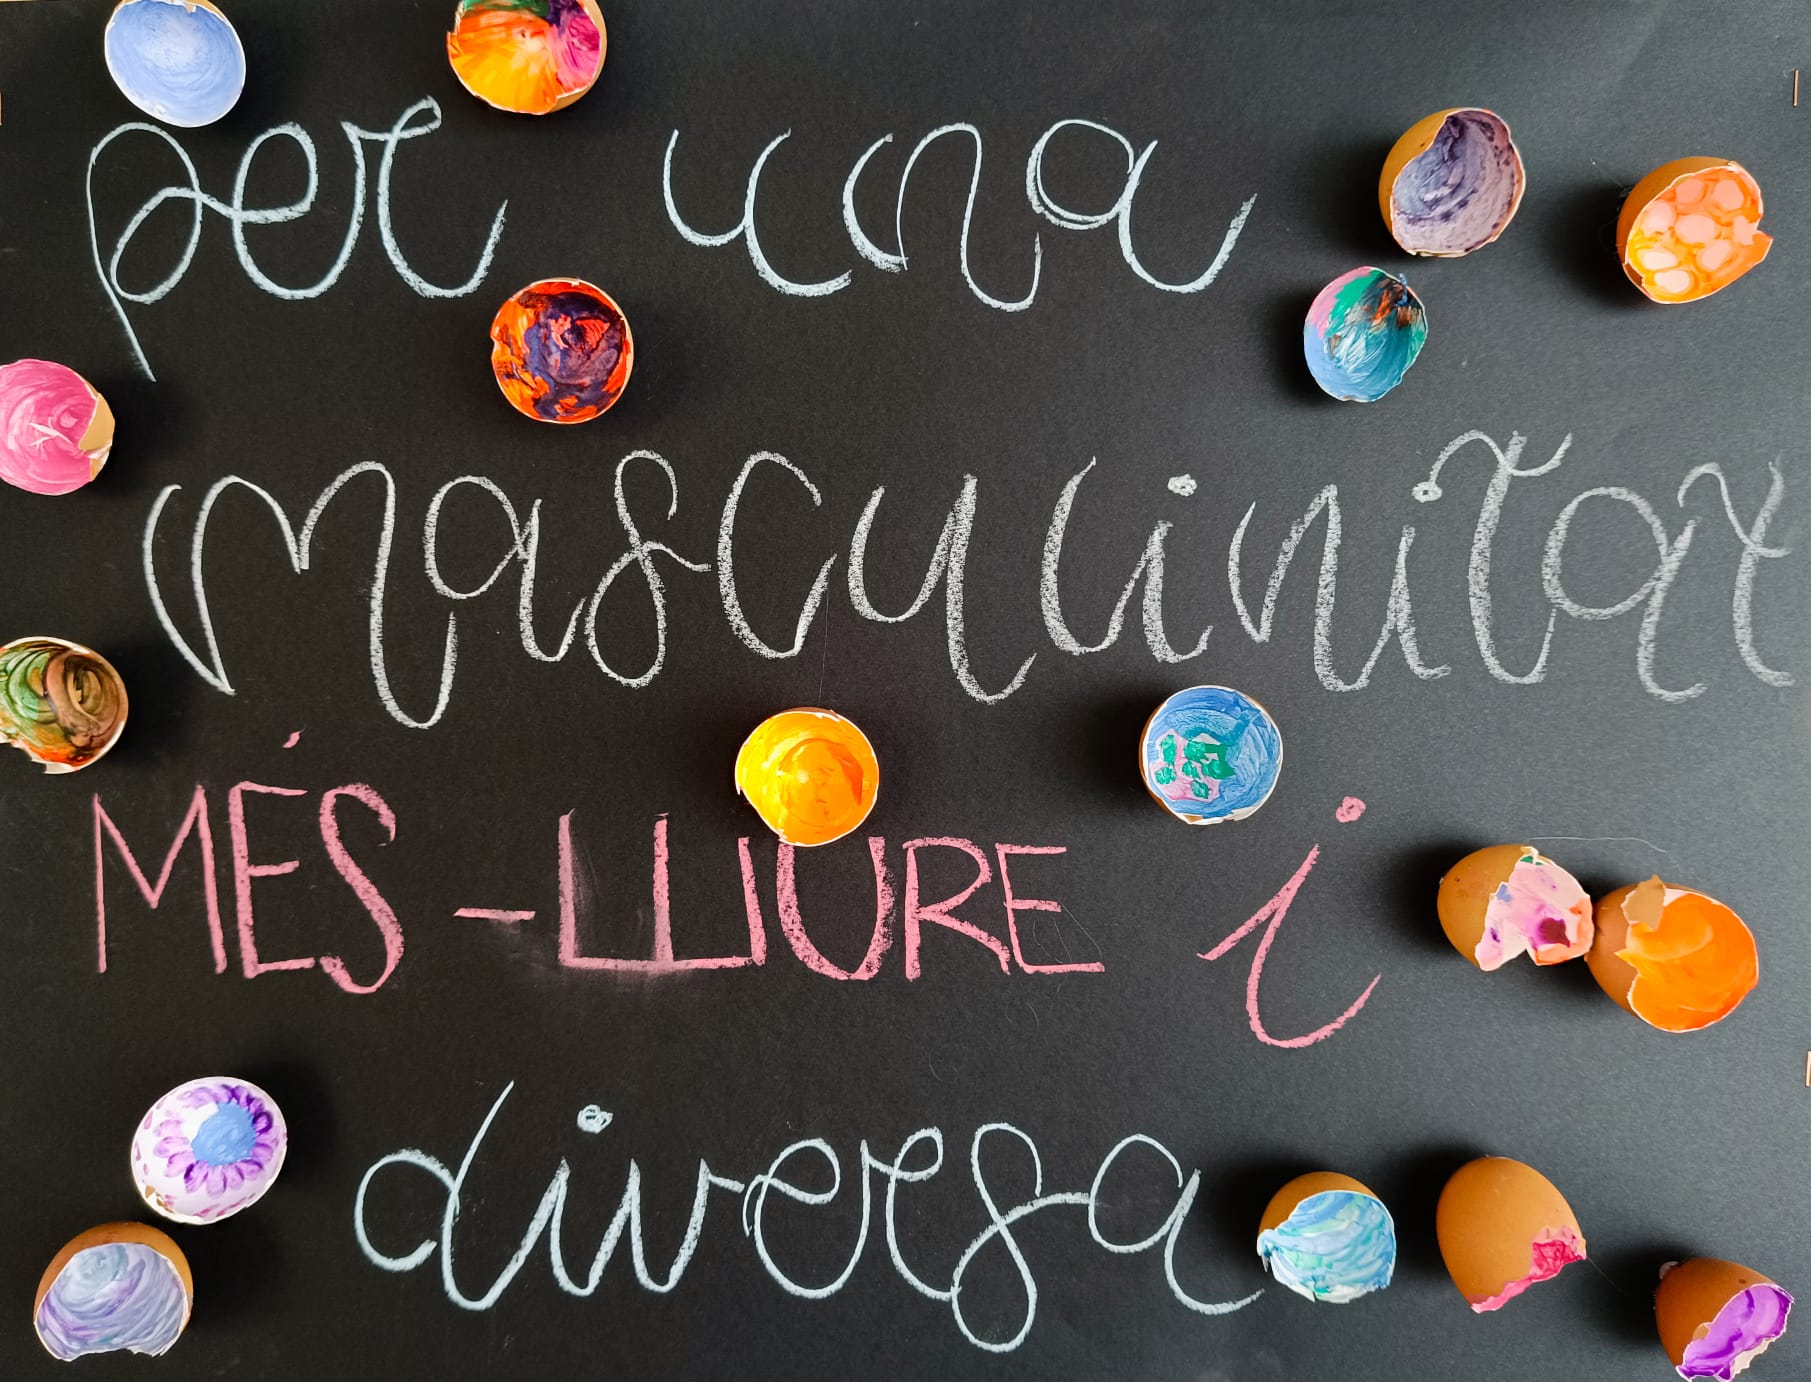 per una
masculinitat
MÉS-LLIURE i
diversa